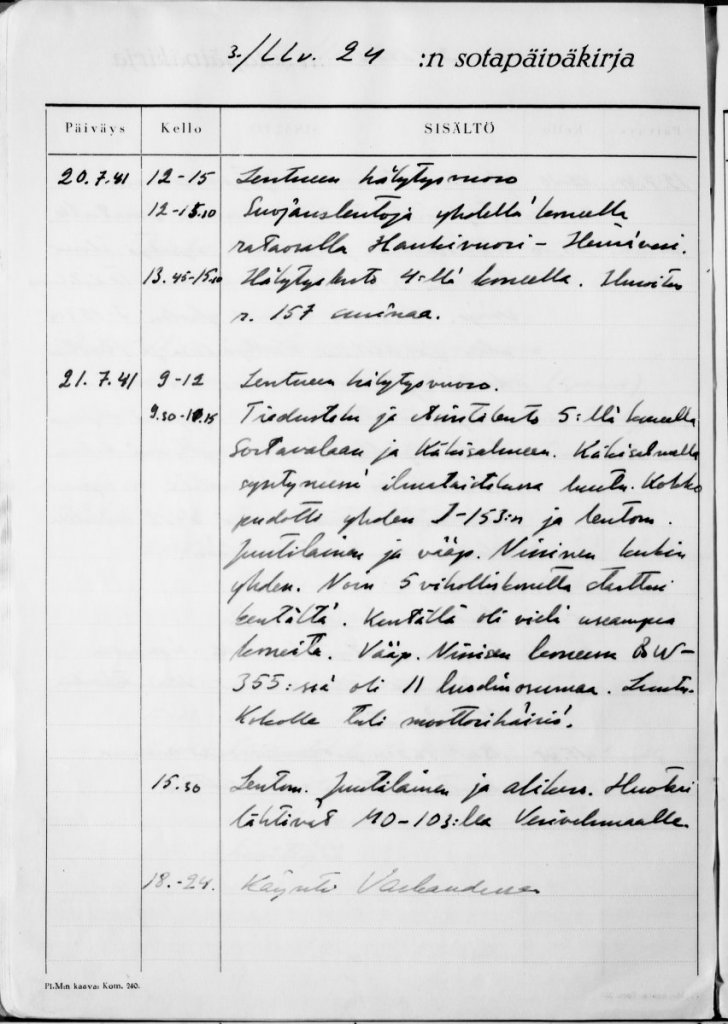 3./LLv. 24 :n sotapäiväkirja
Päiväys Kello SISÄLTÖ
20.7.41 12-15 Lentueen hälytysvuoro
12-15.10 Suojauslentoja yhdellä koneella
rataosalla Haukivuori - Heinävesi.
13.45-15.10 Hälytyslento 4:llä koneella. Ilmoitus
n. 157 surinaa.
21.7.41 9-12 Lentueen hälytysvuoro.
9.30-11.15 Tiedustelu ja hävittäjälento 5:llä koneella
Sortavalaan ja Käkisalmeen. Käkisalmella
syntyneessä ilmataistelussa luutn. Kokko
pudotti yhden I-153:n ja lentom.
Juutilainen ja vääp. Nissinen kukin
yhden. Noin 5 viholliskonetta starttasi
kentältä. Kentällä oli vielä useampia
koneita. Vääp. Nissisen koneessa BW-
355:ssä oli 11 luodinosumaa. Luutn.
Kokolle tuli moottorihäiriö.
15.30 Lentom. Juutilainen ja alikers. Huotari
lähtivät MO-103:lla Vesivehmaalle
18.-24. Käynti Varkaudessa
Pl.M:n kaava: Kom. 240.